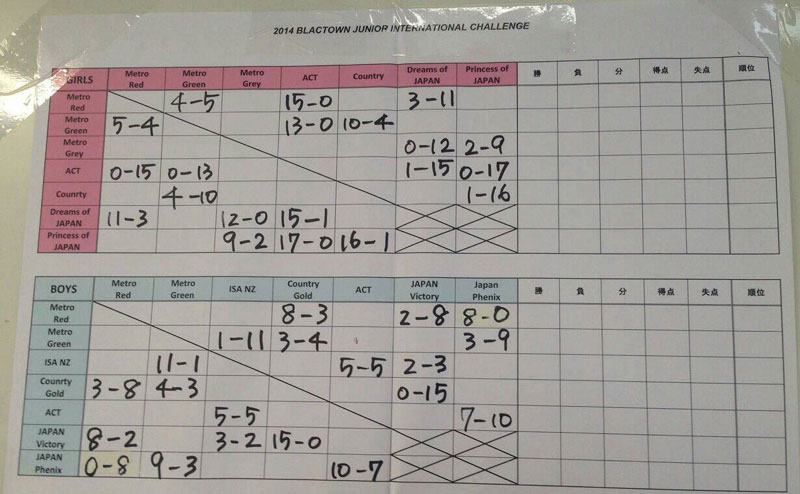 2014 BLACTOWN JUNIOR INTERNATIONAL CHALLENGE
GIRLS Metro Red Metro Green Metro Grey ACT Country Dreams of JAPAN Princess of JAPAN 勝 負 分 得点 失点 順位
Metro Red 4-5 15-0 3-11
Metro Green 5-4 13-0 10-4
Metro Grey 0-12 2-9
ACT 0-15 0-13 1-15 0-17
Counrty 4-10 1-16
Dreams of JAPAN 11-3 12-0 15-1
Princess of JAPAN 9-2 17-0 16-1
BOYS Metro Red Metro Green ISA NZ Country Gold ACT JAPAN Victory Japan Phenix 勝 負 分 得点 失点 順位
Metro Red 8-3 2-8 8-0
Metro Green 1-11 3-4 3-9
ISA NZ 11-1 5-5 2-3
Counrty Gold 3-8 4-3 0-15
ACT 5-5 7-10
JAPAN Victory 8-2 3-2 15-0
JAPAN Phenix 0-8 9-3 10-7